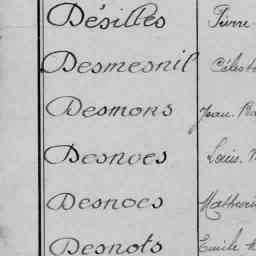 Désilles Pierre
Desmesnil Célest
Desmons Jean. Ba
Desnoes Louis.
Desnoes Mathuri
Desnots Emile